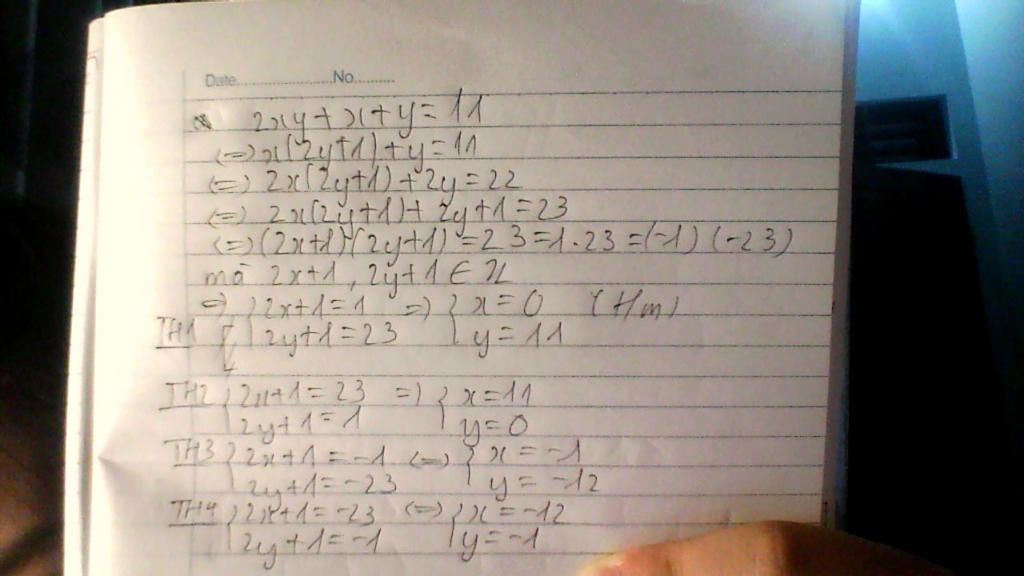 Date.....................No..........
2xy+x+y=11
(=) x(2y+1)+y=11
(=) 2x(2y+1)+2y=22
(=) 2x(2y+1)+2y+1=23
(=) (2x+1)(2y+1)=23=1.23=(-1)(-23)
mà 2x+1, 2y+1 ∈ Z
TH1 =) { 2x+1=1 =) { x=0 (t/m)
2y+1=23 y=11
TH2 { 2x+1=23 =) { x=11
2y+1=1 y=0
TH3 { 2x+1=-1 (=) { x=-1
2y+1=-23 y=-12
TH4 { 2x+1=-23 (=) { x=-12
2y+1=-1 y=-1